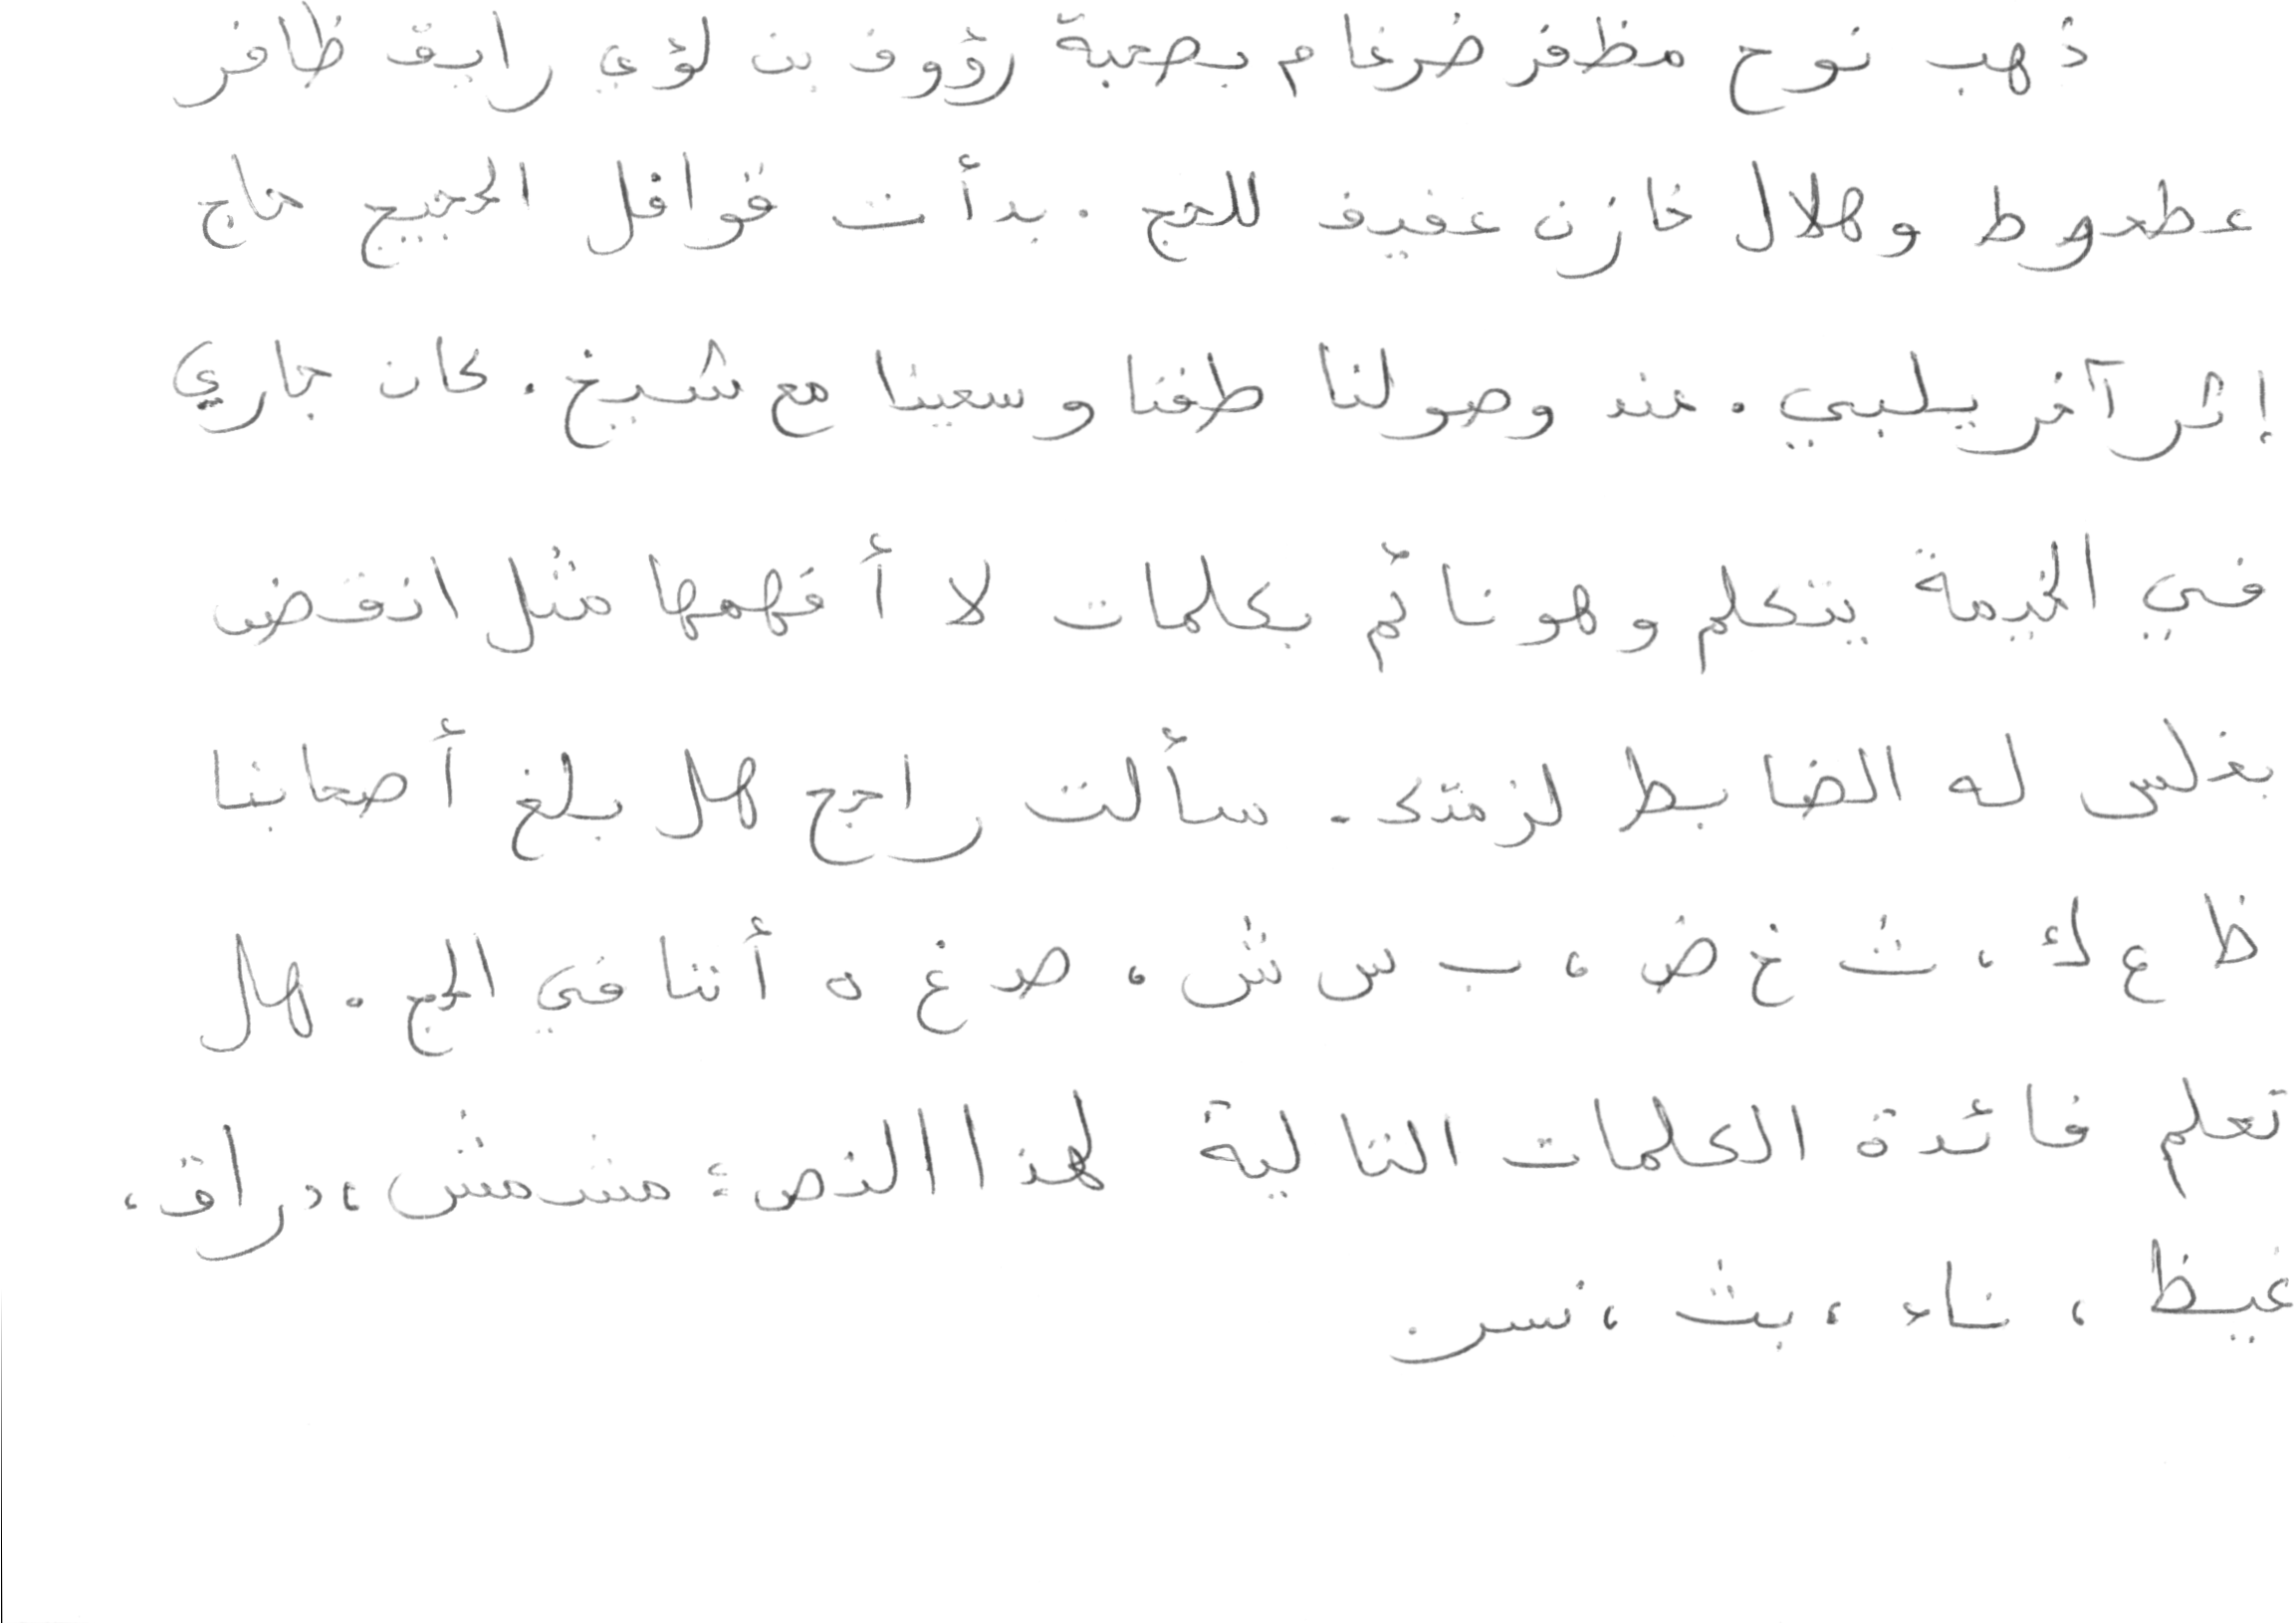 ذهب نوح مظفر ضرغام بصحبة رؤوف بن لؤي رايق ظافر
عطعوط وهلال خازن عفيف للحج . بدأت قوافل الحجيج حاج
إثر آخر يلبي . عند وصولنا طفنا وسعينا مع شيخ . كان جاري
في الخيمة يتكلم وهو نائم بكلمات لا أفهمها مثل انقض
بغلس له الضابط لزمتك . سألت راجح هل بلغ أصحابنا
ظ ع ك ، ث خ ض ، ب س ش ، ص غ ه أننا في الحج . هل
تعلم فائدة الكلمات التالية لهذا النص : مشمش ، دراق ،
غيظ ، ناء ، بث ، نسر .